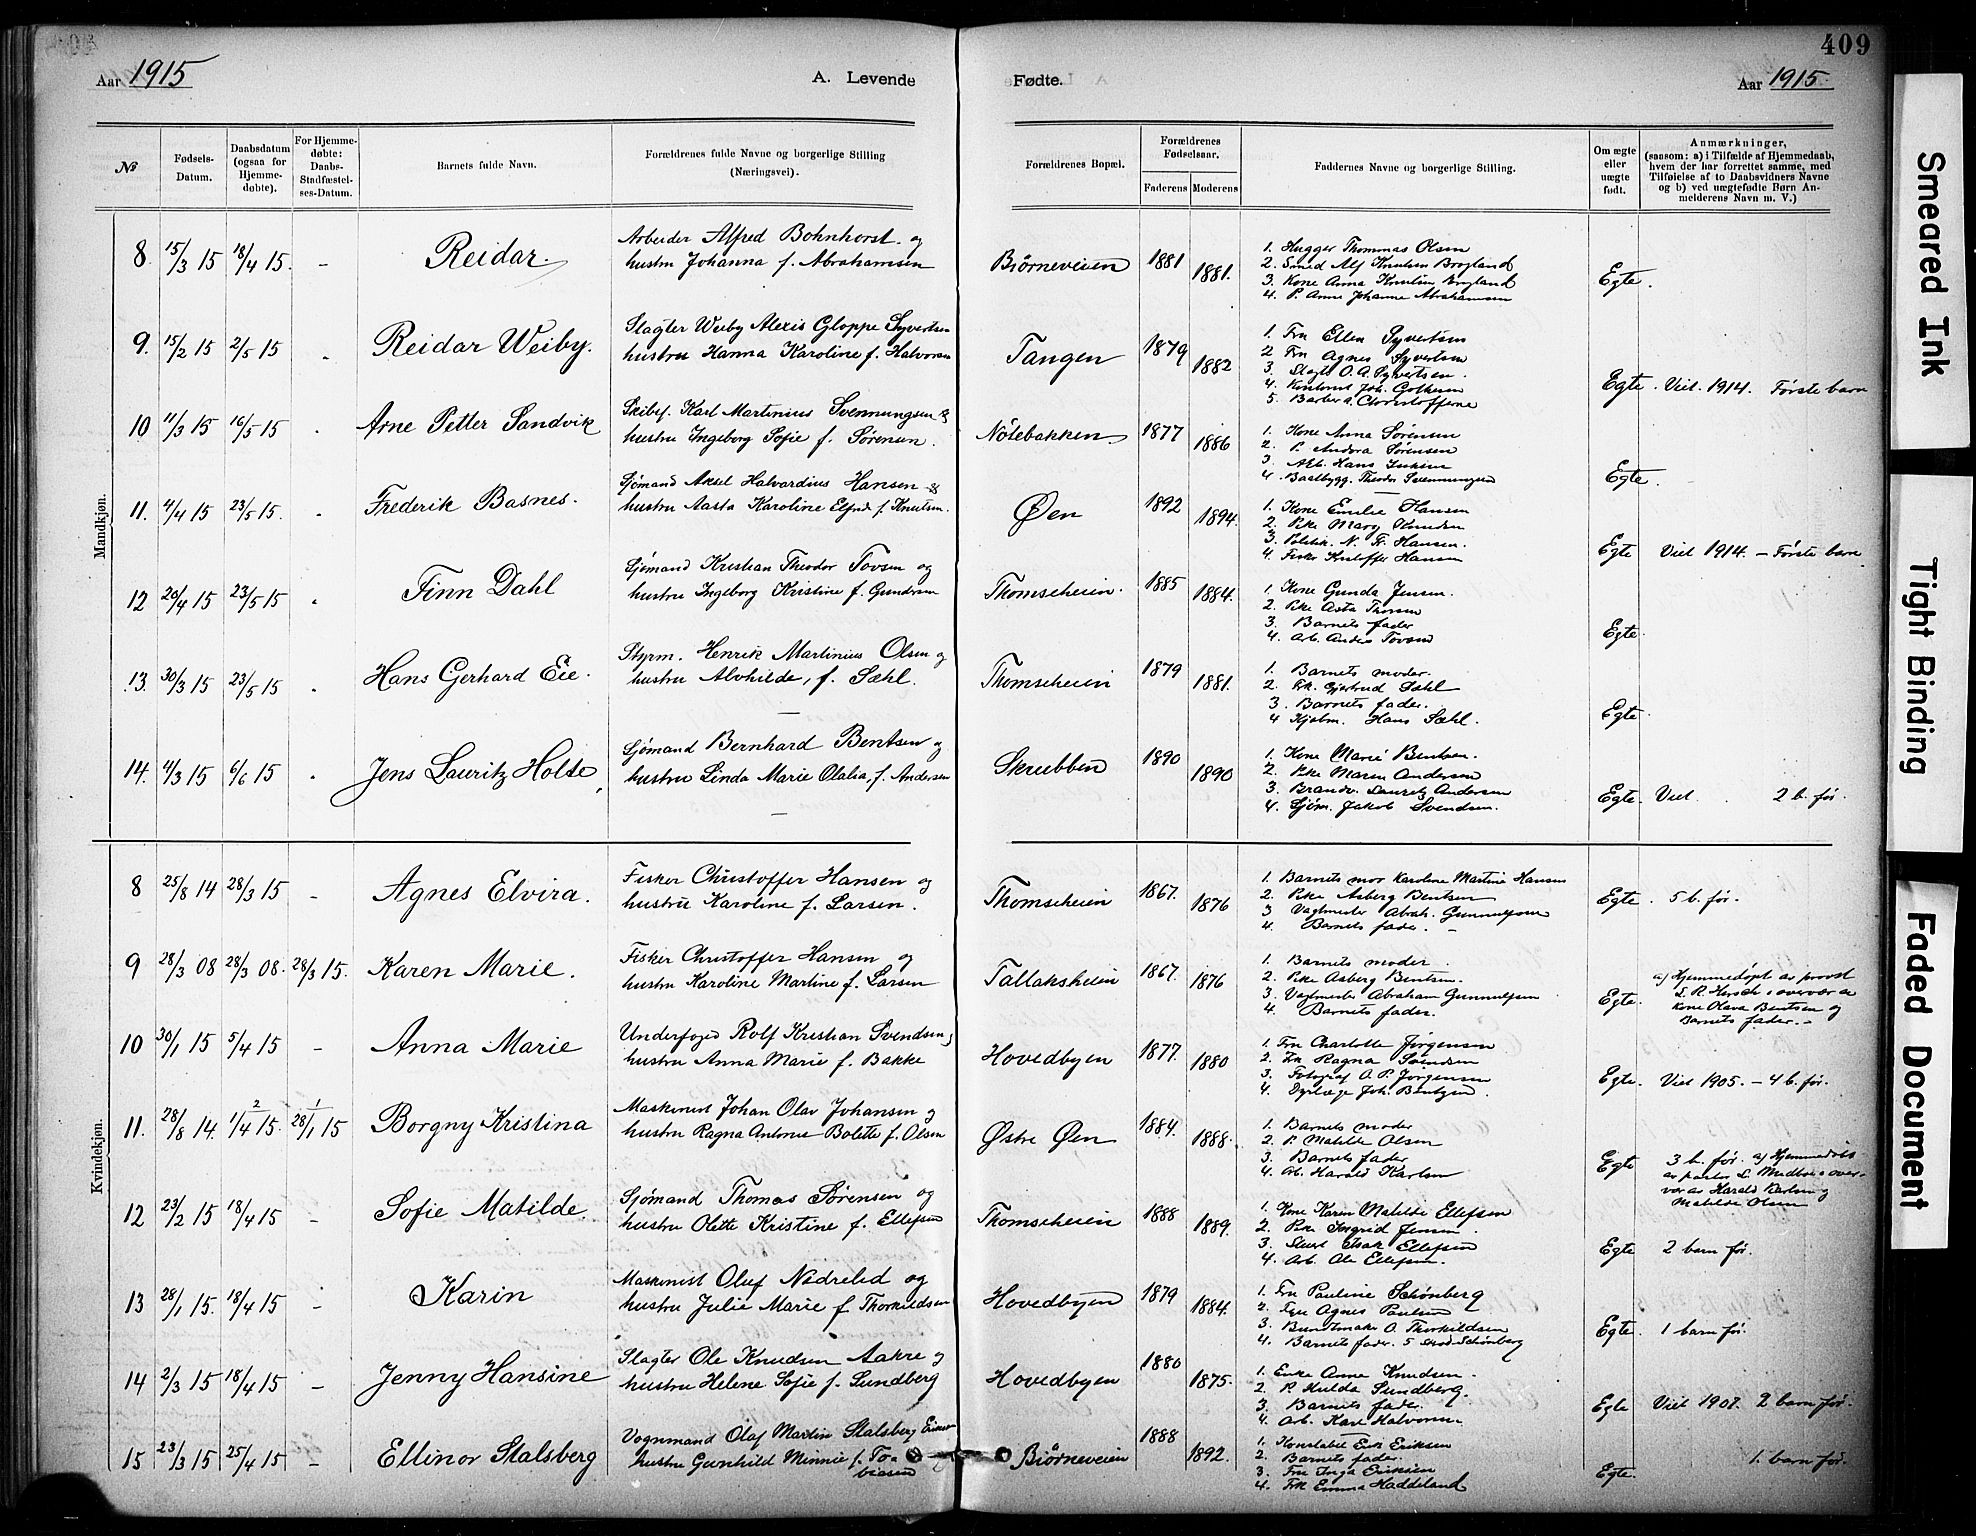 409
Aar 1915
A. Levende
Fødte.
Aar 1915.
№
Fødsels-Datum.
Daabsdatum (ogsaa for Hjemmedøbte).
For Hjemmedøbte: Daabs-Stadfæstelses-Datum.
Barnets fulde Navn.
Forældrenes fulde Navne og borgerlige Stilling (Næringsvei).
Forældrenes Bopæl.
Forældrenes Fødselsaar.
Faderens Moderens
Faddernes Navne og borgerlige Stilling.
Om ægte eller uægte født.
Anmærkninger,
(saasom: a) i Tilfælde af Hjemmedaab,
hvem der har forrettet samme, med
Tilføielse af to Daabsvidners Navne
og b) ved uægtefødte Børn Anmelderens Navn m. V.)
Mandkjøn.
8. 15/3 15 18/4 15. – Reidar.
Arbeider Alfred Bohnhorst og
hustru Johanna f. Abrahamsen
Bjørneveien 1881 1881.
1. Hugger Thommas Olsen
2. Smed Alf Knutsen Brogland
3. Kone Anna Knutsen Brogland
4. P. Anne Johanne Abrahamsen
Egte.
9. 15/2 15 2/5 15 Reidar Weiby.
Slagter Weiby Alexis Gloppe Syvertsen
hustru Hanna Karoline f. Halvorsen
Tangen 1879 1882
1. Fru Ellen Syvertsen
2 Fru Agnes Syvertsen
3. Slagt. O. A. Syvertsen.
4.
5. Barber
Egte. Viet 1914. Første barn
10 11/3 15 16/5 15 Arne Petter Sandvik
Skibsf. Karl Martinius Svennungsen &
hustru Ingeborg Sofie f. Sørensen.
Nötebakken 1877 1886
1. Kone Anna Sørensen
2. P. Andora Sørensen
3. Arb. Hans
4. Baatbygg. Theodor Svennungsen
Egte.
11. 4/4 15 23/5 15. Frederik Basnes.
Sjømand Aksel Halvardius Hansen &
hustru Aasta Karoline f. Knutsen.
Øen 1892 1894.
1. Kone Emilie Hansen
2. Pike Mary Knudsen
3. Politik. N. Fr. Hansen.
4. Fisker Kristoffer Hansen
Egte Viet 1914. – Første barn
12 20/4 15 23/5 15 Finn Dahl
Sjømand Kristian Theodor Tovsen og
hustru Ingeborg Kristine f. Gundersen
Thomseheien. 1885 1884.
1. Kone Gunda Jensen.
2. Pike Asta Thorsen
3. Barnets fader
4. Arb. Anders Tovsen
Egte.
13. 30/3 15 23/5 15 Hans Gerhard Eie.
Styrm. Henrik Martinius Olsen og
hustru Alvhilde, f. Sæhl.
Thomseheien 1879 1881.
1. Barnets moder.
2. Frk. Gjertrud Sæhl
3. Barnets fader.
4 Kjøbm. Hans Sæhl.
Egte.
14. 4/3 15 6/6 15 Jens Lauritz Holte,
Sjømand Bernhard Bentsen og
hustru Linda Marie Olalia, f. Andersen
Skrubben 1890 1890
1. Kone Marie Bentsen.
2. Pike Maren Andersen
3. Brandv. Lauritz Andersen
4. Sjøm. Jakob Svendsen.
Egte. Viet. 2 b. før.
Kvindekjøn.
8 25/8 14 28/3 15 – Agnes Elvira.
Fisker Christoffer Hansen og
hustru Karoline f. Larsen.
Thomseheien 1867. 1876
1. Barnets mor Karoline Martine Hansen
2. Pike Asberg Bentsen
3 Vagtmester Abrah. Gunnulfsen
4. Barnets fader.
Egte. 5 b. før.
9 28/3 08 28/3 08. 28/3 15. Karen Marie.
Fisker Christoffer Hansen og
hustru Karoline Martine f. Larsen
Tallaksheien 1867. 1876
1. Barnets moder.
2. Pike Asberg Bentsen.
3. Vagtmester Abraham Gunnulfsen
4. Barnets fader.
Egte. a) Hjemmedøpt av provst
i overvær av
kone Olava Bentsen og
Barnets fader. –
10 30/1 15 5/4 15 – Anna Marie
Underfoged Rolf Kristian Svendsen,
hustru Anna Marie f. Bakke
Hovedbyen 1877. 1880
1. Fru Charlotte Jörgensen
2. Frk Ragna Svendsen
3. Fotograf O. P. Jörgensen
4. Dyrlæge Joh. Bentzen.
Egte. Viet 1905. – 4 b. før.
11. 28/8 14. 2 1/4 15. 28/1 15 Borgny Kristina
Maskinist Johan Olav Johansen og
hustru Ragna Antonie Bolette f. Olsen
Østre Øen 1884. 1888.
1. Barnets moder
2. P. Matilde Olsen
3. Barnets fader
4. Arb. Harald Karlsen
Egte 3 b. før. a) Hjemmedöbt
av pastor L. i over-
vær av Harald Karlsen og
Matilde Olsen
12 23/2 15 18/4 15 – Sofie Matilde
Sjømand Thomas Sørensen og
hustru Olette Kristine f. Ellefsen
Thomseheien 1888 1889.
1. Kone Karin Matilde Ellefsen
2. Pike Ingrid Jensen.
3. Isak Ellefsen
4. Arb. Ole Ellefsen.
Egte 2 barn før.
13 28/1 15. 18/4 15 – Karin
Maskinist Oluf Nedrelid og
hustru Julie Marie f Thorkildsen
Hovedbyen 1879 1884.
1. Fru Pauline Schönberg
2. Fru Agnes Paulsen
3. Bundtmaker O. Thorkildsen
4. Barnets fader. 5 Schönberg
Egte. 1 barn før.
14 2/3 15 18/4 15 – Jenny Hansine
Slagter Ole Knudsen Aakre og
hustru Helene Sofie f. Sundberg
Hovedbyen 1880 1875.
1. Enke Anna Knudsen.
2. P. Hulda Sundberg.
3. Barnets fader.
4. Arb. Karl Halvorsen
Egte Viet 1907. 2 barn før.
15 23/3 15 25/4 15 – Ellinor Stalsberg
Vognmand Olaf Martin Stalsberg
hustru Gunhild Minnie f. To-
biasen
Bjørneveien 1888 1892.
1. Konstabel Erik Eriksen
2. Barnets fader.
3. Fru Inga Eriksen
4. Frk Emma Haddeland
Egte. 1. barn før.
Smeared Ink
Tight Binding
Faded Document